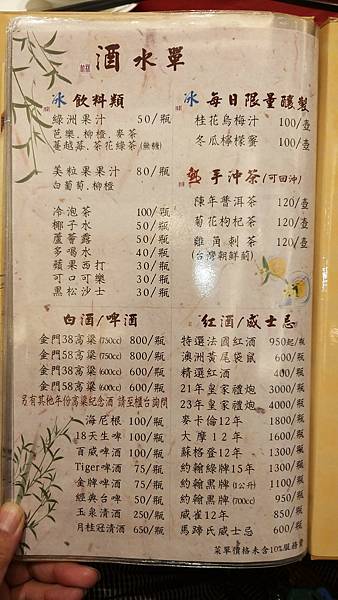 酒水單
冰 飲料類
綠洲果汁 50/瓶
芭樂.柳橙.麥茶
蔓越莓.茶花綠茶(無糖)
美粒果果汁 80/瓶
白葡萄.柳橙
冷泡茶 100/瓶
椰子水 50/瓶
蘆薈露 50/瓶
多喝水 40/瓶
蘋果西打 30/瓶
可口可樂 30/瓶
黑松沙士 30/瓶
冰 每日限量釀製
桂花烏梅汁 100/壺
冬瓜檸檬蜜 100/壺
熱 手沖茶(可回沖)
陳年普洱茶 120/壺
菊花枸杞茶 120/壺
雞角刺茶 120/壺
(台灣朝鮮薊)
白酒/啤酒
金門38高粱(750cc) 800/瓶
金門58高粱(750cc) 800/瓶
金門38高粱(600cc) 600/瓶
金門58高粱(600cc) 600/瓶
另有其他年份高粱紀念酒 請至櫃台詢問
海尼根 100/瓶
18天生啤 100/瓶
百威啤酒 100/瓶
Tiger啤酒 75/瓶
金牌啤酒 75/瓶
經典台啤 50/瓶
玉泉清酒 250/瓶
月桂冠清酒 650/瓶
紅酒/威士忌
特選法國紅酒 950起/瓶
澳洲黃尾袋鼠 600/瓶
精選紅酒 400/瓶
21年皇家禮炮 3000/瓶
23年皇家禮炮 4000/瓶
麥卡倫12年 1800/瓶
大摩12年 1600/瓶
蘇格登12年 1300/瓶
約翰綠牌15年 1300/瓶
約翰黑牌(1公升) 1100/瓶
約翰黑牌(700cc) 950/瓶
威雀12年 850/瓶
馬蹄氏威士忌 600/瓶
菜單價格未含10%服務費